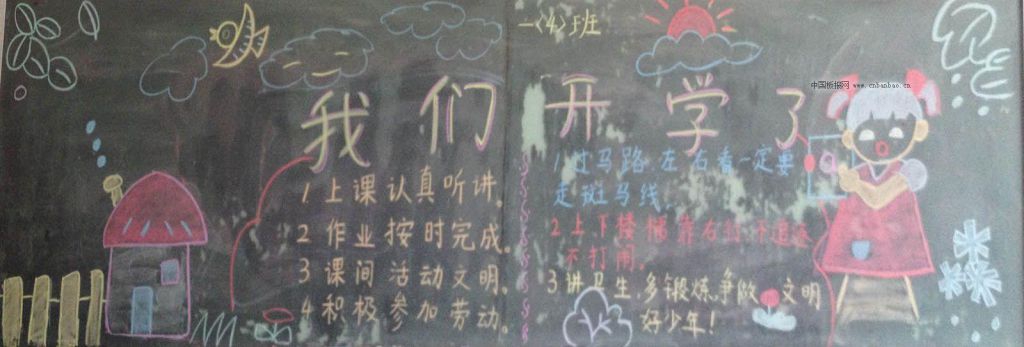 一〈4〉班
我们开学了
中国板报网 www.cnbanbao.cn
1 上课认真听讲。
2 作业按时完成。
3 课间活动文明。
4 积极参加劳动。
1 过马路左右看一定要
走斑马线.
2 上下楼梯靠右行不追逐
不打闹。
3 讲卫生,多锻炼,争做文明
好少年!